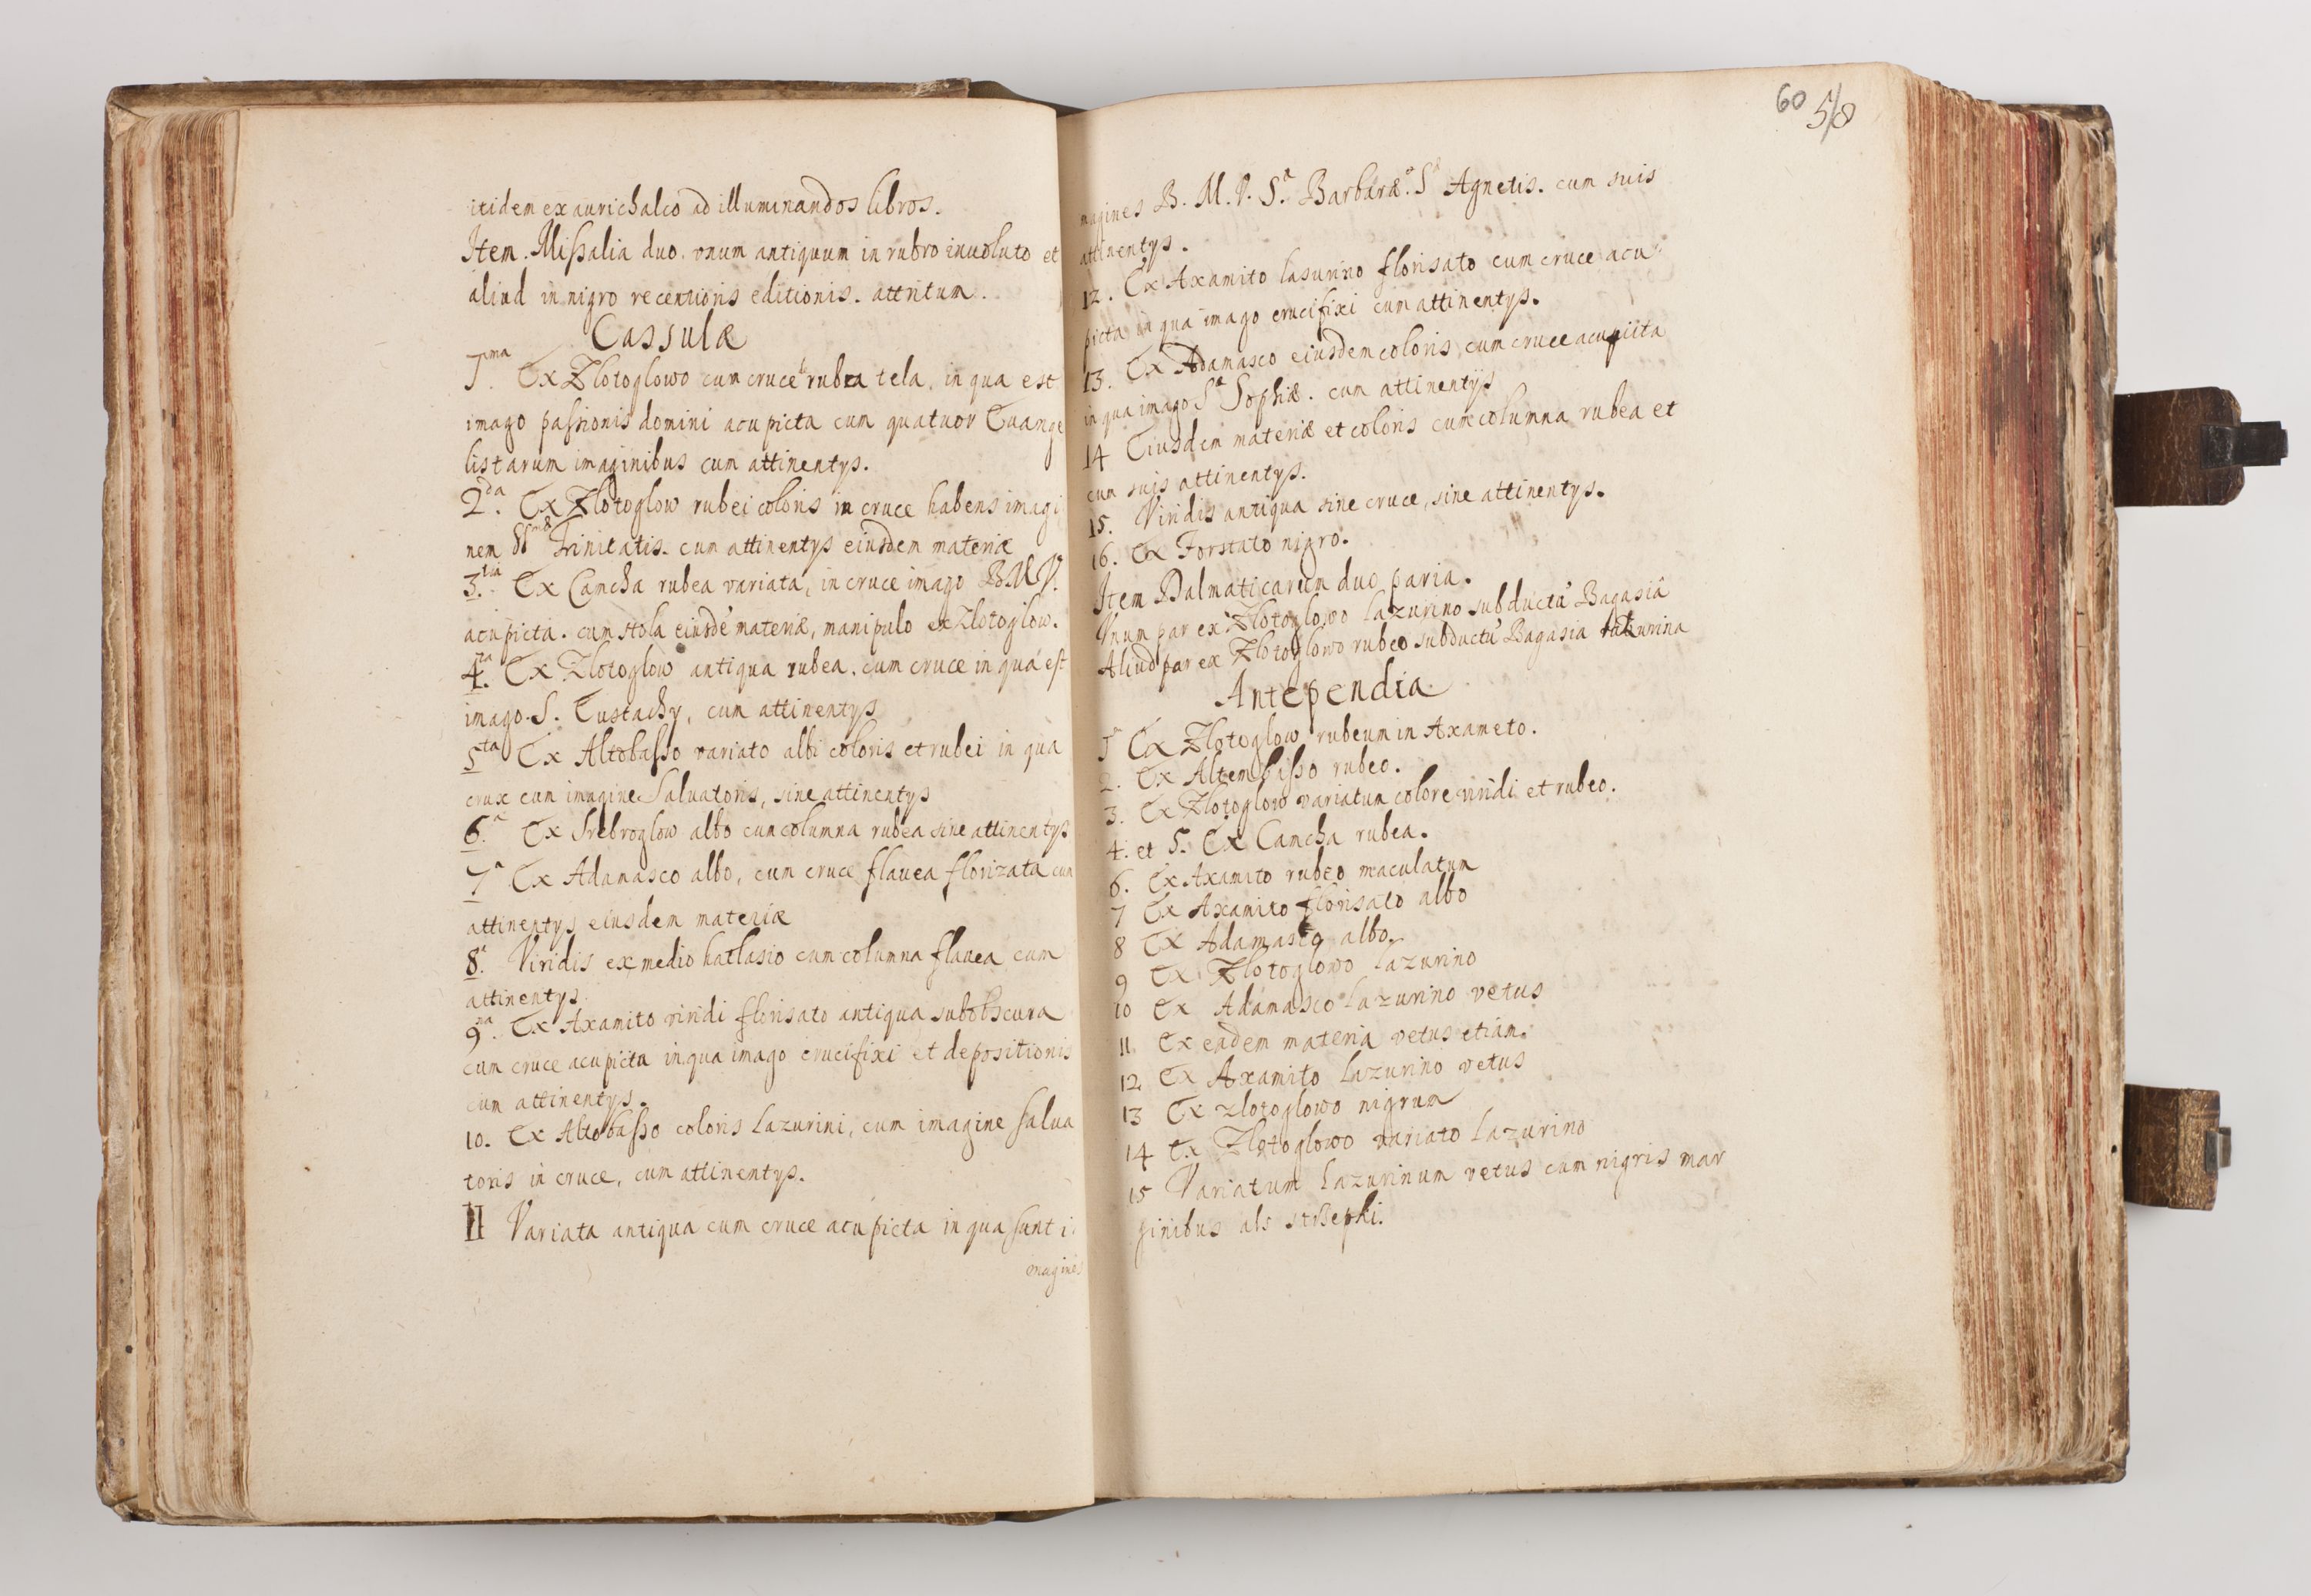 itidem ex aurichalco ad illuminandos libros.
Item. Missalia duo. vnum antiquum in rubro inuoluto et
aliud in nigro recentioris editionis. attritum.
Cassulæ
1ma. Ex Zlotoglowo cum cruce rubea tela, in qua est
imago passionis domini acupicta cum quatuor Euange
listarum imaginibus cum attinentys.
2da. Ex Zlotoglow rubei coloris in cruce habens imagi
nem SSmæ Trinitatis. cum attinentys eiusdem materiæ
3tia. Ex Camcha rubea variata, in cruce imago BMV.
acupicta. cum stola eiusdē materiæ, manipulo ex Zlotoglow.
4ta. Ex Zlotoglow antiqua rubea. cum cruce in qua est
imago. S. Eustachy, cum attinentys
5ta Ex Altobasso variato albi coloris et rubei in qua
crux cum imagine Saluatoris, sine attinentys
6.a Ex Srebroglow albo cum columna rubea sine attinentys
7a Ex Adamasco albo, cum cruce flauea florizata cum
attinentys eiusdem materiæ
8a. Viridis ex medio hatlasio cum columna flauea cum
attinentys
9na. Ex Axamito viridi florisato antiqua subobscura
cum cruce acupicta in qua imago crucifixi et depositionis
cum attinentys.
10. Ex Altobasso coloris Lazurini, cum imagine Salua
toris in cruce, cum attinentys.
11 Variata antiqua cum cruce acupicta in qua sunt i
magines
60 58
magines B. M. V. S.a Barbaræ. Sæ Agnetis. cum suis
attinentys.
12. Ex Axamito lasurino florisato cum cruce acu
picta in qua imago crucifixi cum attinentys.
13. Ex Adamasco eiusdem coloris cum cruce acupiita
in qua imago Sæ Sophiæ. cum attinentys
14 Eiusdem materiæ et coloris cum columna rubea et
cum suis attinentys.
15. Viridis antiqua sine cruce, sine attinentys.
16. Ex Forstato nigro.
Item Dalmaticarum duo paria.
Vnum par ex Zlotoglowo Lazurino subductū Bagasia
Aliud par ex Zlotoglowo rubeo subductū Bagasia lazurina
Antependia
1a Ex Zlotoglow rubeum in Axameto.
2. Ex Altembasso rubeo.
3. Ex Zlotoglow variatum colore viridi et rubeo.
4. et 5. Ex Camcha rubea.
6. Ex Axamito rubeo maculatum
7 Ex Axamito florisato albo
8 Ex Adamasco albo.
9 Ex Zlotoglowo Lazurino
10 Ex Adamasco Lazurino vetus
11. Ex eadem materia vetus etiam.
12 Ex Axamito Lazurino vetus
13 Ex zlotoglowo nigrum
14 Ex Zlotoglowo variato Lazurino
15 Variatum Lazurinum vetus cum nigris mar
ginibus als